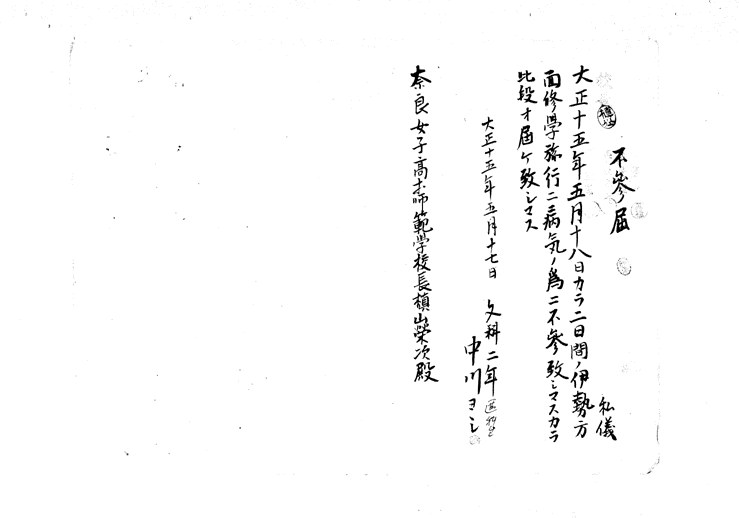 不參届
私儀
大正十五年五月十八日カラ二日間ノ伊勢方
面修學旅行ニ病気ノ爲ニ不參致シマスカラ
此段オ届ケ致シマス
大正十五年五月十七日 文科二年
中川ヨシ
奈良女子高等師範学校長槇山榮次殿